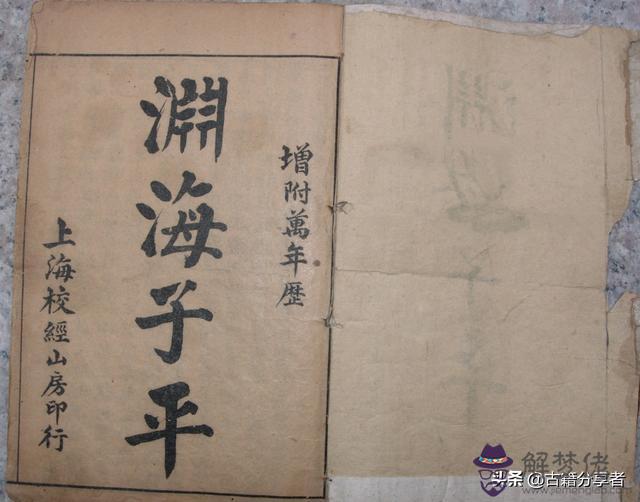 增附萬年歷
淵海子平
上海校經山房印行
解梦佬
头条@古籍分享者